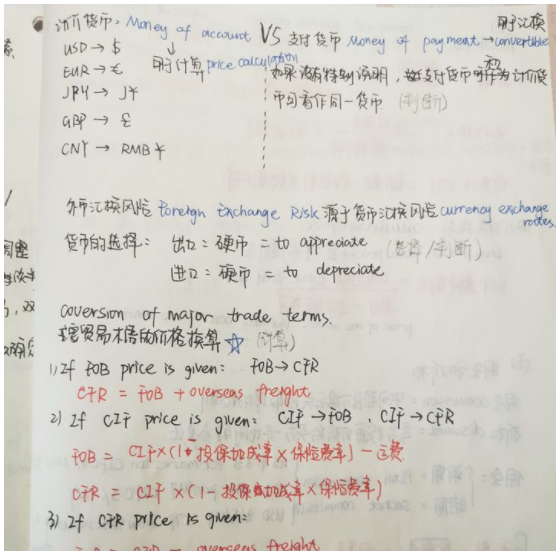 计价货币: Money of account VS 支付货币 Money of payment → convertible 用于汇换
USD → $ ↓
用于计算 price calculation
EUR → € 如果没有特别说明, 支付货币 计价货
JPY → J¥ 币可看作同一货币 (判断)
GBP → £
CNY → RMB ¥
外币汇换风险 Foreign Exchange Risk 源于货币汇换风险 currency exchange rates.
货币的选择: 出口: 硬币 = to appreciate (选择/判断)
进口: 硬币 = to depreciate
coversion of major trade terms.
主要贸易术语的价格换算 ☆ (计算)
1) If FOB price is given: FOB → CFR
CFR = FOB + overseas freight
2) If CIF price is given: CIF → FOB CIF → CFR
FOB = CIF × (1 - 投保加成率 × 保险费率) - 运费
CFR = CIF × (1 - 投保加成率 × 保险费率)
3) If CFR price is given:
overseas freight